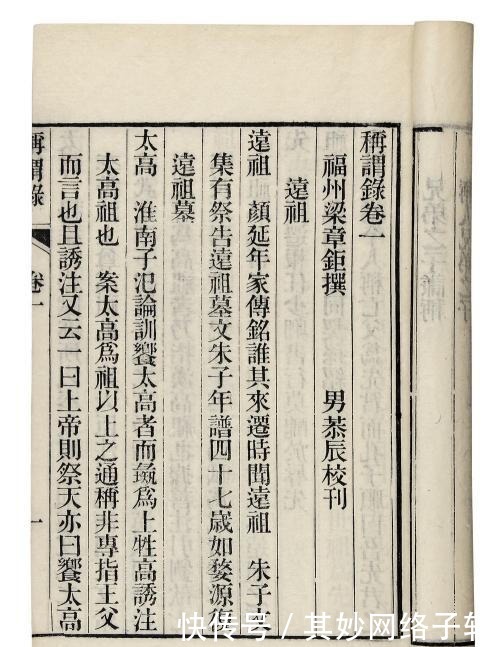 稱謂錄卷一
福州梁章鉅撰 男恭辰校刊
遠祖
遠祖 顏延年家傳銘誰其來遷時聞遠祖 朱子文
集有祭告遠祖墓文朱子年譜四十七歲如婺源復
遠祖墓
太高 淮南子氾論訓饗太高者而彘為上牲高誘注
太高祖也 案太高為祖以上之通稱非專指王父
而言也且誘注又云一曰上帝則祭天亦曰饗太高
稱謂錄 卷一 一
快传号/其妙网络子轩